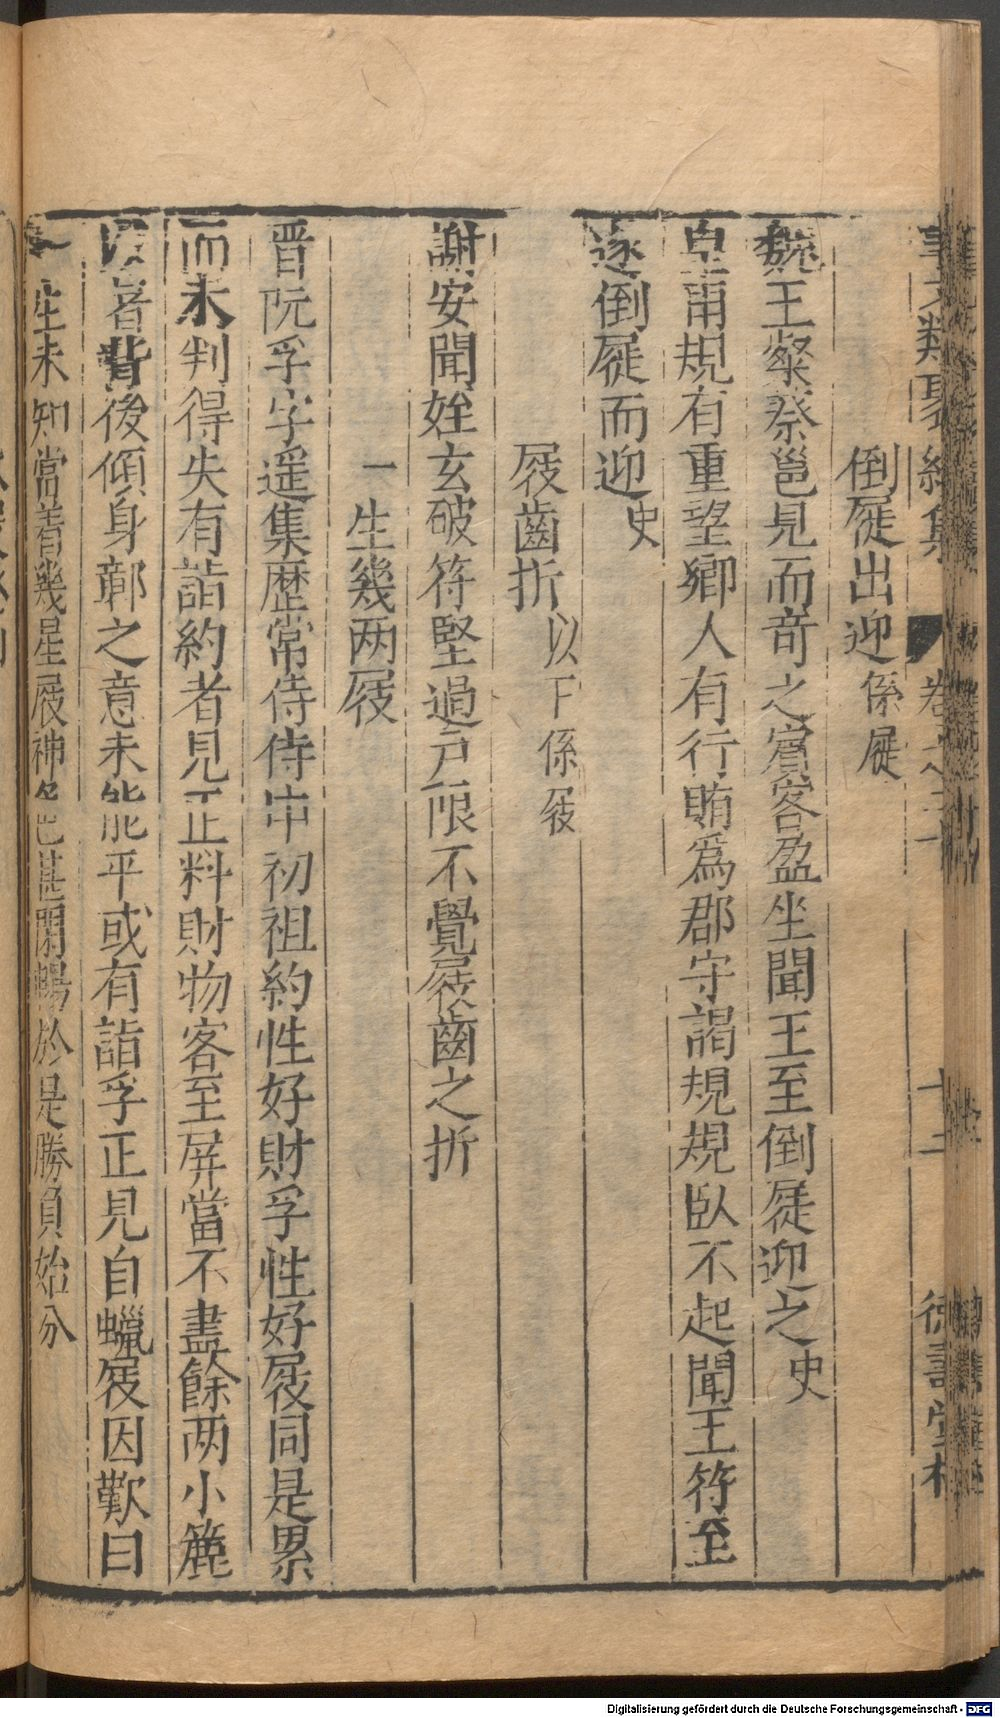 事文類聚續集 卷之二十 十二 德壽堂梓
倒屣出迎 係屣
魏王粲蔡邕見而竒之賓客盈坐聞王至倒屣迎之 史
皇甫規有重望鄉人有行賄爲郡守謁規規臥不起聞王符至
遂倒屣而迎 史
屐齒折 以下係屐
謝安聞姪玄破符堅過户限不覺屐齒之折
一生幾两屐
晋阮孚字遥集歷常侍侍中初祖約性好財孚性好屐同是累
而未判得失有詣約者見正料財物客至屏當不盡餘两小簏
以着背後傾身鄣之意未能平或有詣孚正見自蠟屐因歎曰
一生未知當着幾量屐神色甚閑暢於是勝負始分
Digitalisierung gefördert durch die Deutsche Forschungsgemeinschaft - DFG